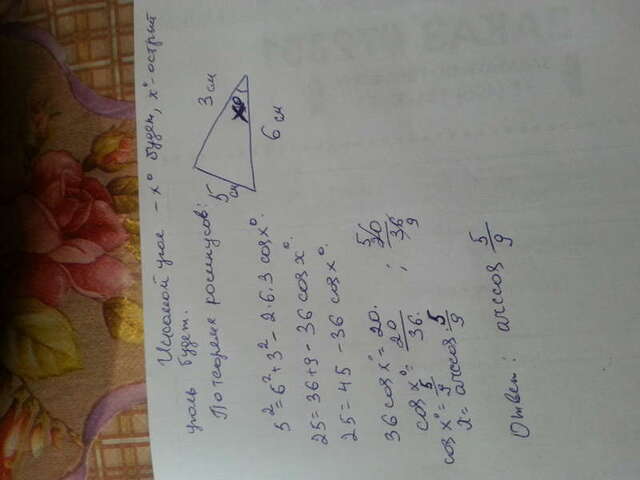 Искомой угол – x° будет, x° - острый
уголь будет.
По теореме косинусов:
5 см
3 см
x°
6 см
5² = 6² + 3² – 2·6·3 cos x°.
25 = 36 + 9 – 36 cos x°.
25 = 45 – 36 cos x°.
36 cos x° = 20.
cos x° = 20/36. ; 20/36
5
9
cos x° = 5/9
x = arccos 5/9
Ответ: arccos 5/9